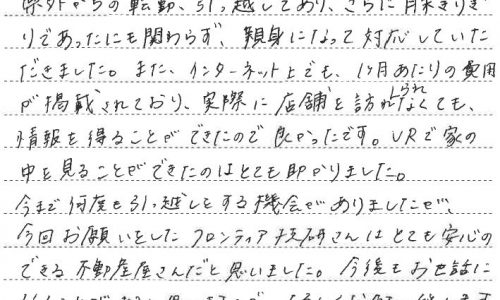 県外からの転勤、引っ越してあり、さらに月末ぎりぎ
りであったにも関わらず、親身になって対応していた
だきました。また、インターネット上でも、1ヶ月あたりの費用
が掲載されており、実際に店舗を訪れなくても、
情報を得ることができたので良かったです。VRで家の
中を見ることができたのはとても助かりました。
今まで何度も引っ越しをする機会がありましたが、
今回お願いをしたフロンティア技研さんはとても安心の
できる不動産屋さんだと思いました。今後もお世話に